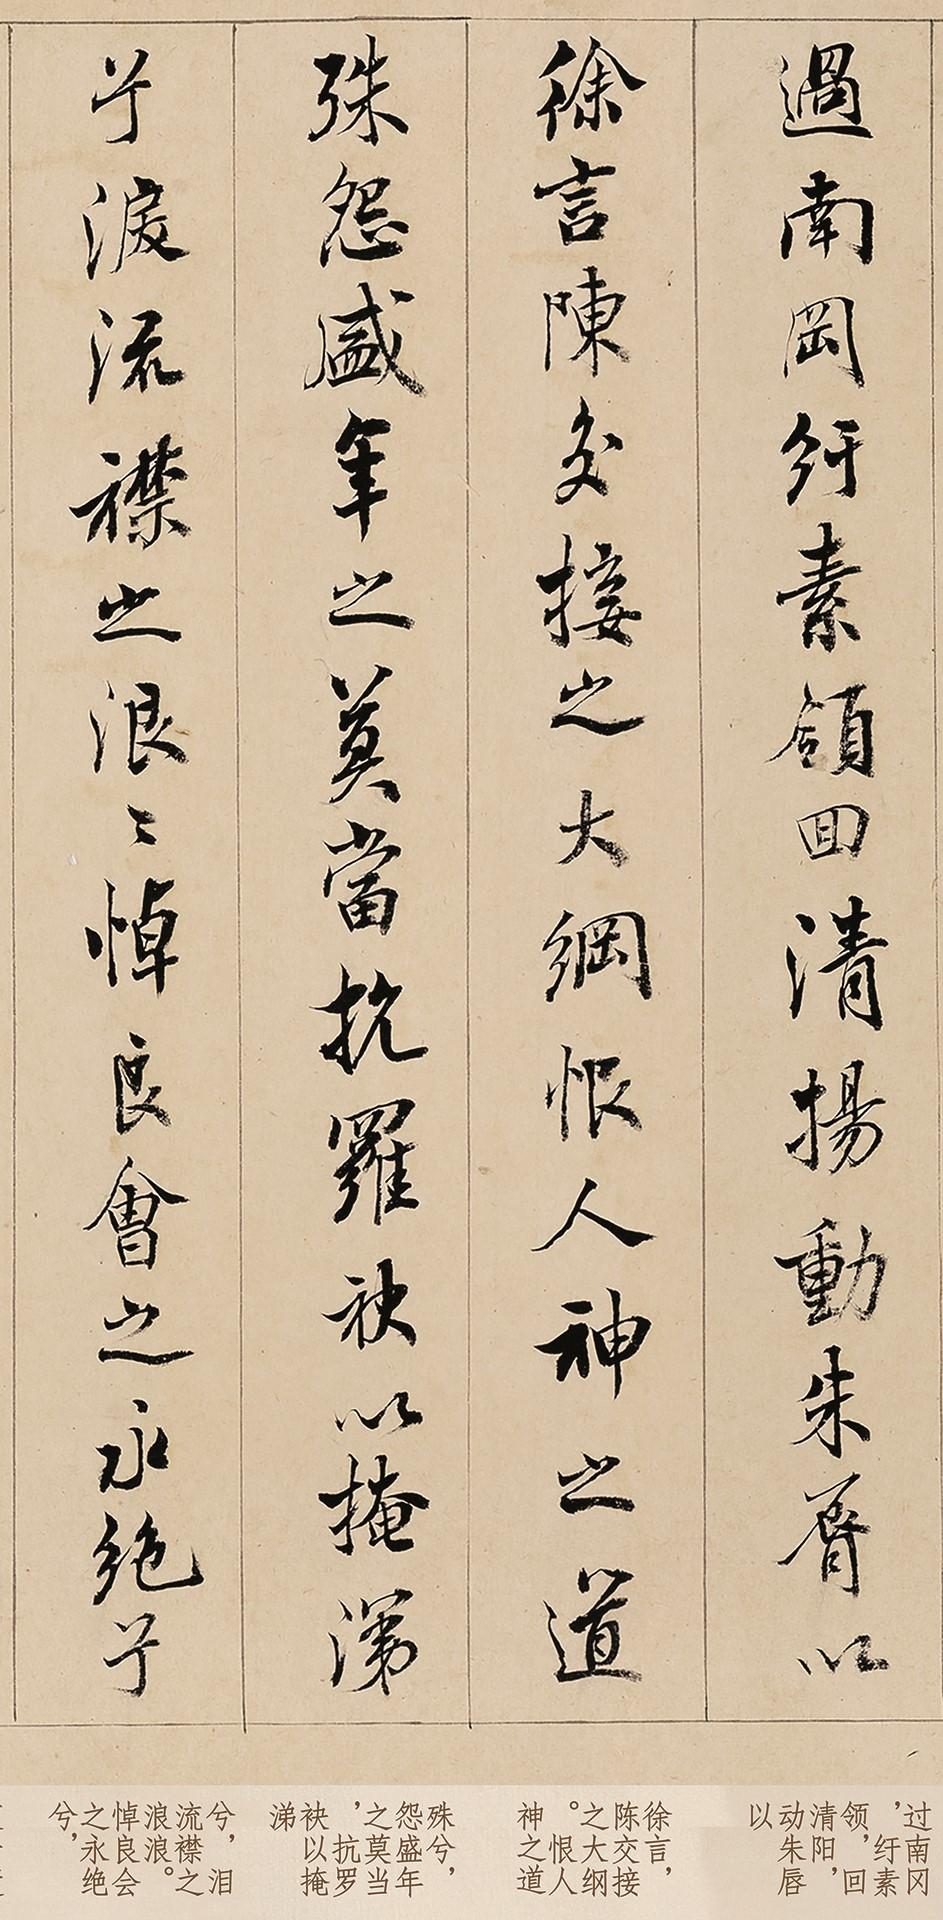 過南岡紆素領回清揚動朱脣以
徐言陳交接之大綱恨人神之道
殊怨盛年之莫當抗羅袂以掩涕
兮淚流襟之浪〻悼良會之永絕兮
过南冈
，纡素
领，回
清阳，
动朱唇
以
徐言，
陈交接
之大纲
。恨人
神之道
殊兮，
怨盛年
之莫当
，抗罗
袂以掩
涕
兮，泪
流襟之
浪浪。
悼良会
之永绝
兮，